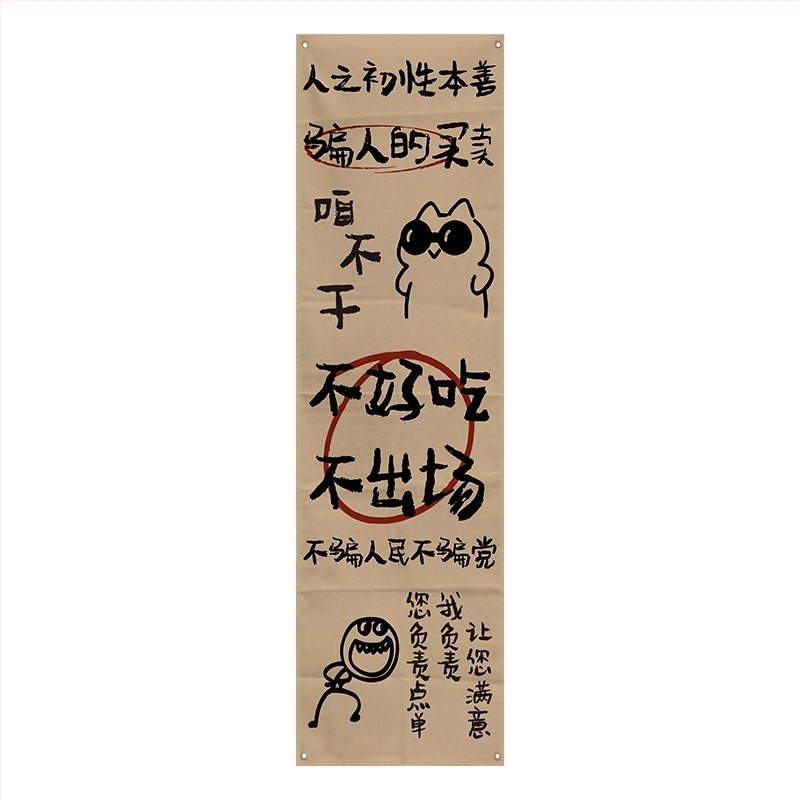 人之初性本善
骗人的买卖
咱
不
干
不好吃
不出场
不骗人民不骗党
您负责点单
我负责
让您满意